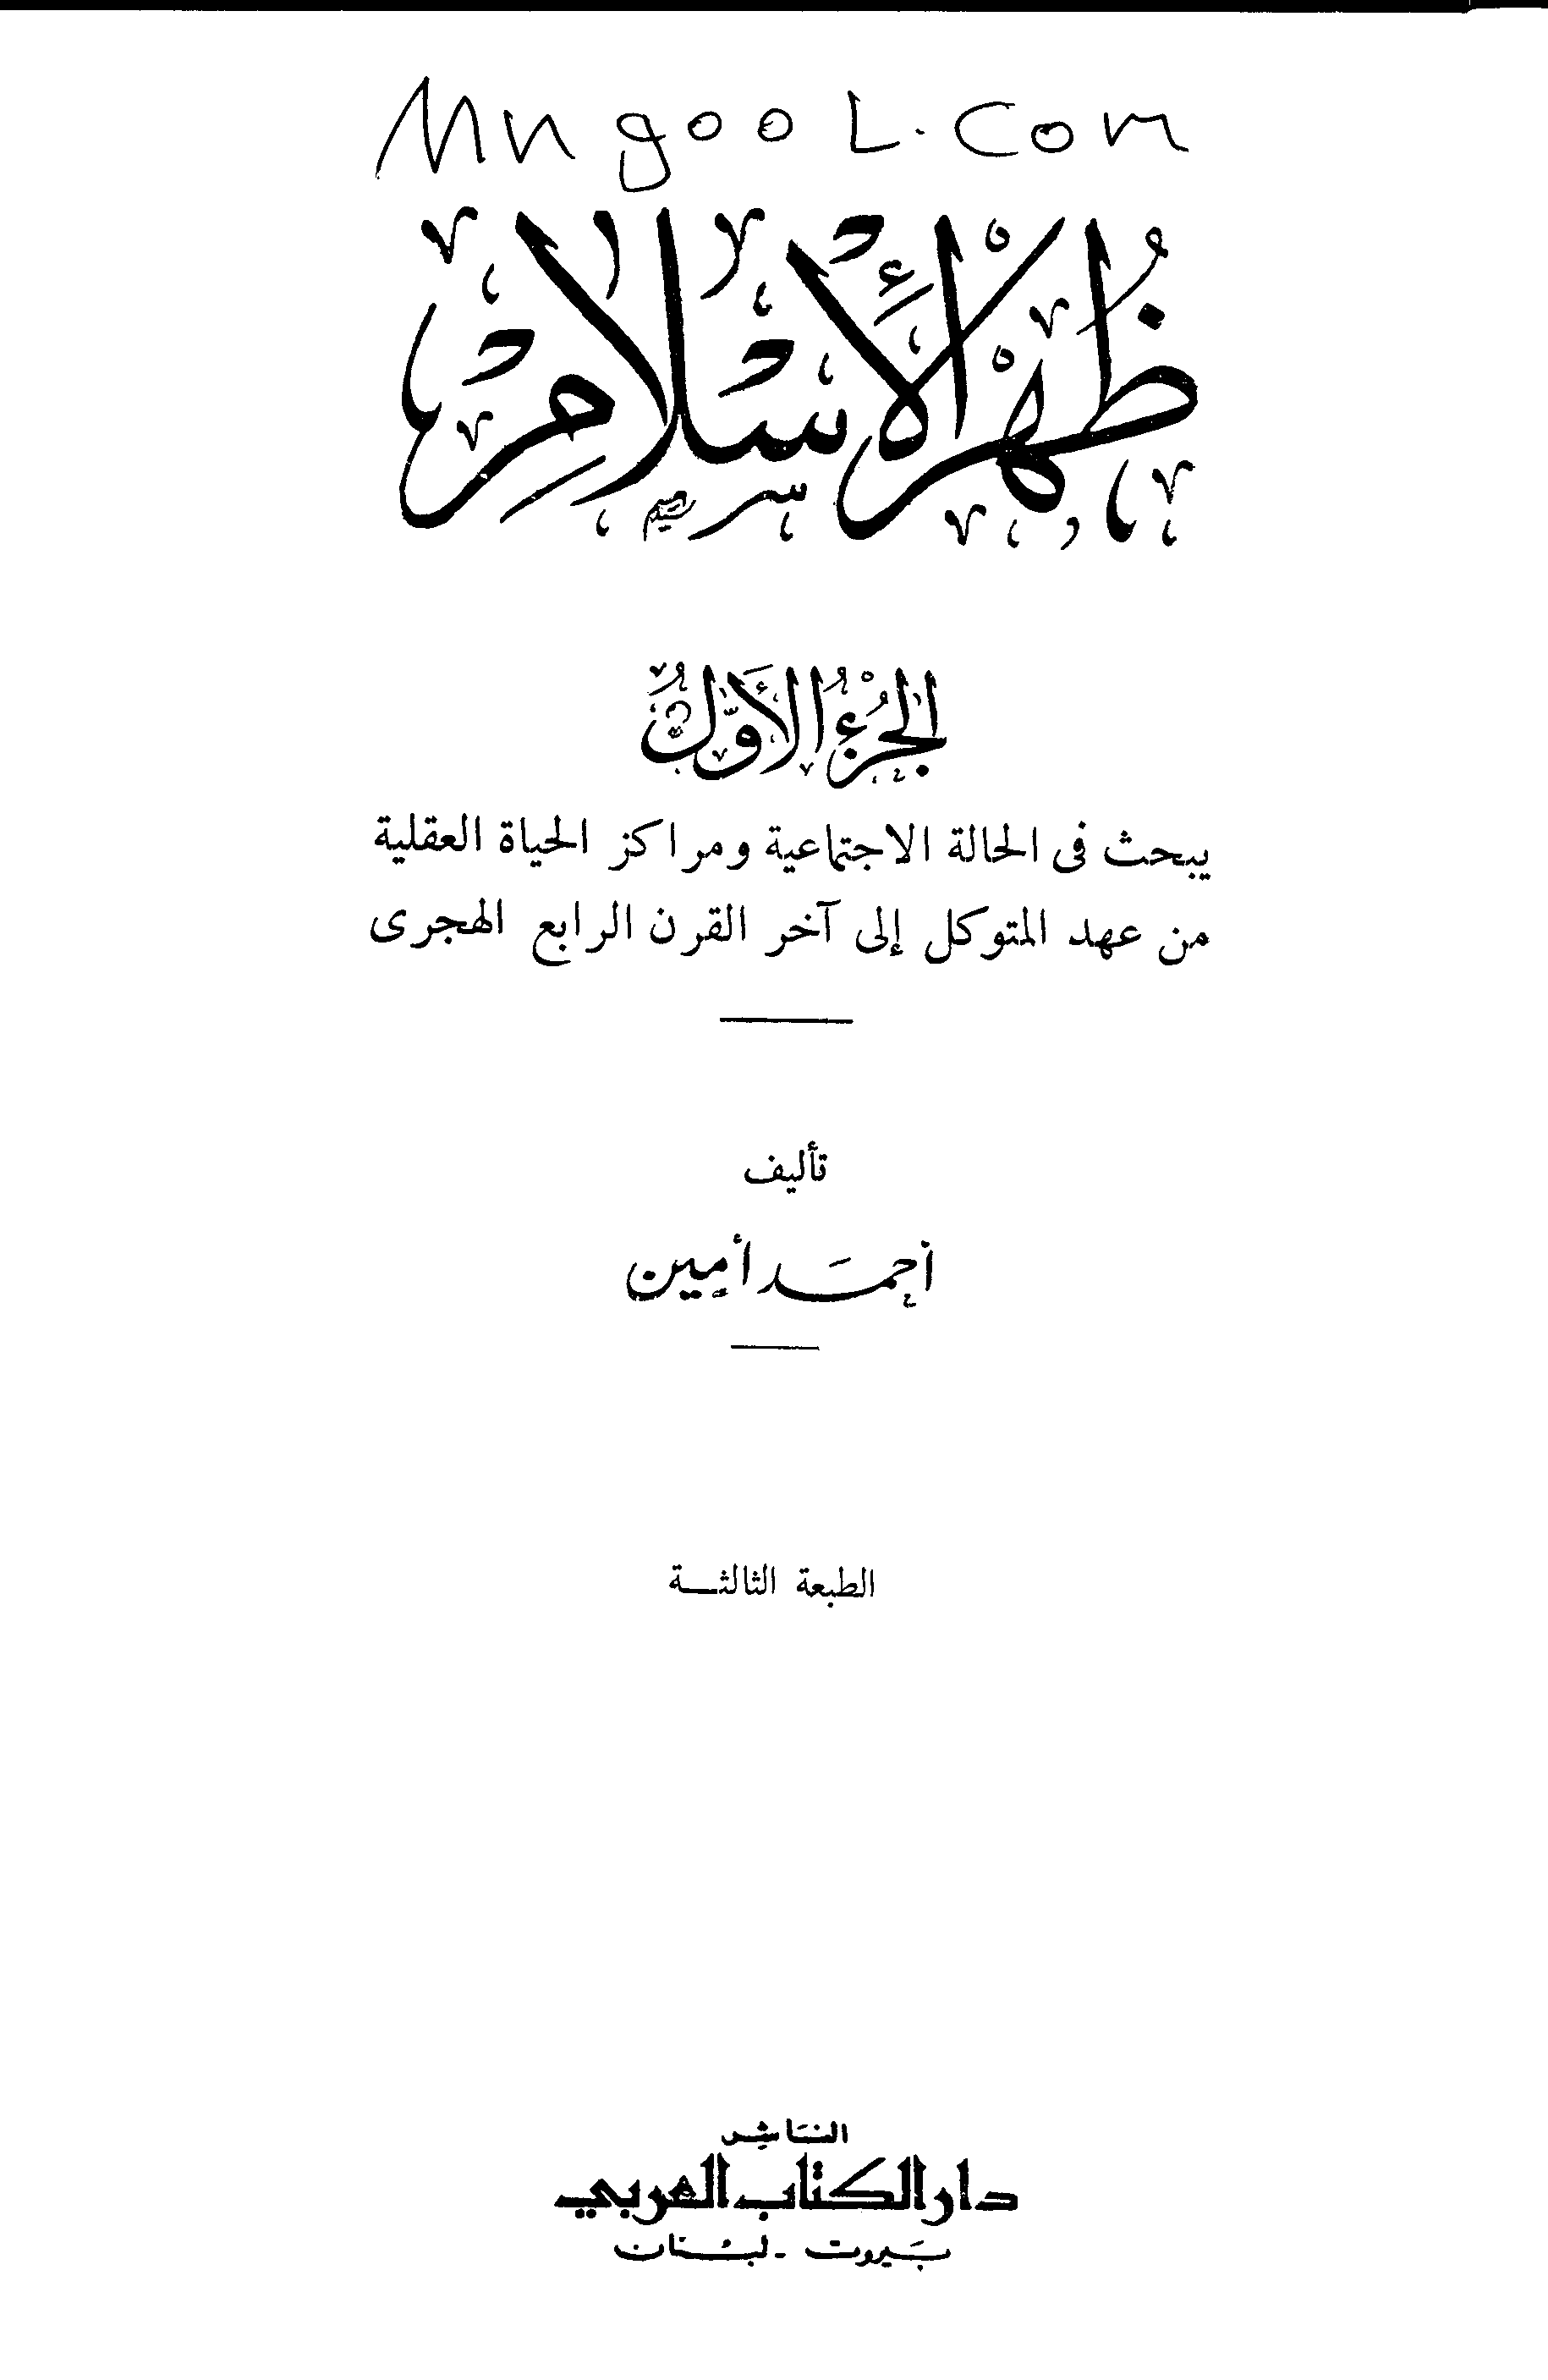 Mngool.com
ظُهْرُ الإِسْلَامِ
الجُزْءُ الأَوَّلُ
يبحث فى الحالة الاجتماعية ومراكز الحياة العقلية
من عهد المتوكل إلى آخر القرن الرابع الهجرى
تأليف
أحمد أمين
الطبعة الثالثة
الناشر
دار الكتاب العربي
بيروت - لبنان